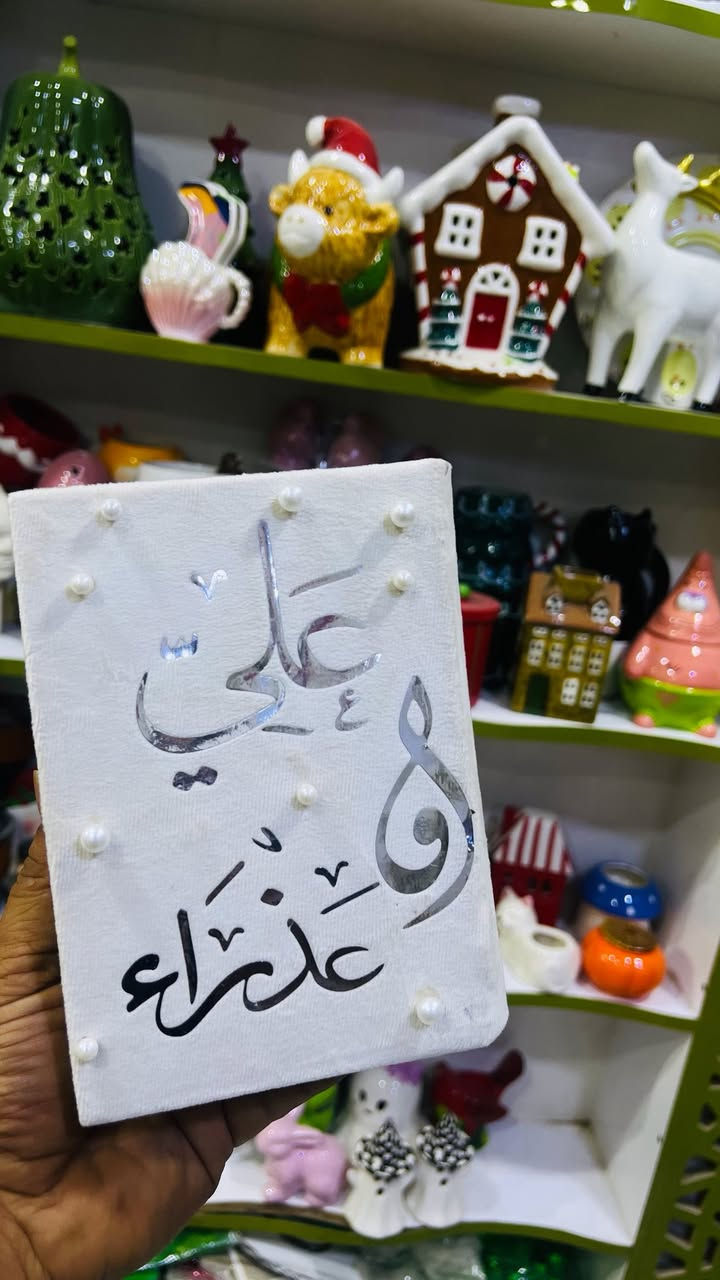 عَلِيّ
و
عَذْرَاء